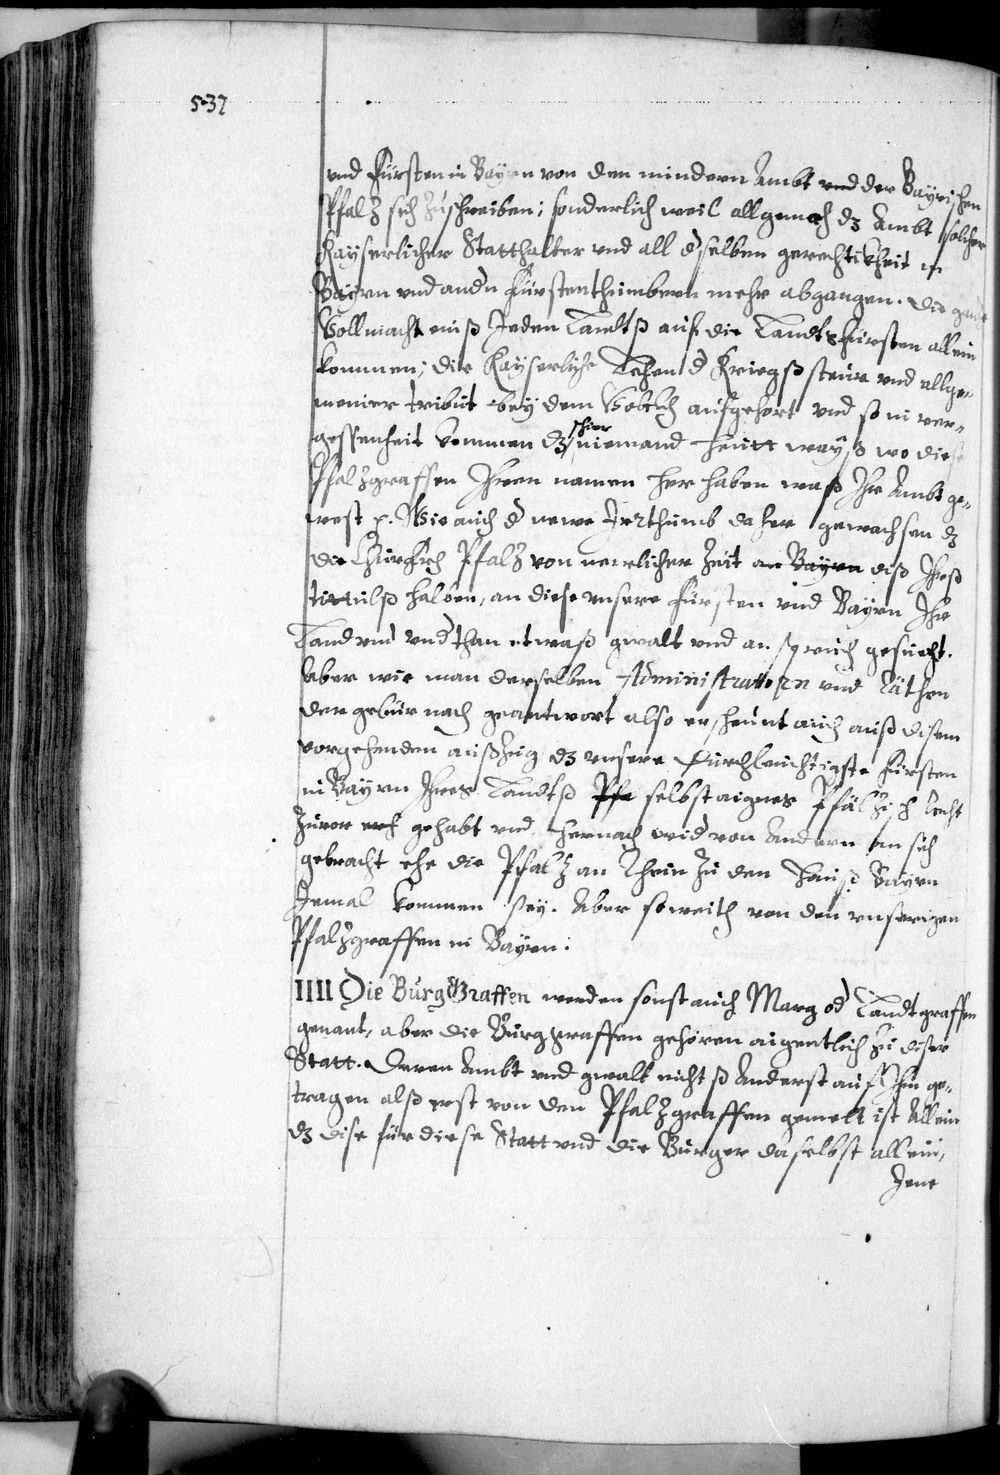 537
und Fürsten in Bayrn von den mindern Ambt und der Bayrischen
Pfalz sich zuschreiben; sonderlich weil allgemach dz Ambt solcher
Kayserlicher Statthalter und all dselben gerechtikheit in
Bayrn und andn Fürstenthumbern mehr abgangen. die
Vollmacht eniß Jeden Landtß auf die Landtsfürsten allein
kommen; die Kayserliche Lehen d Kriegßsteür und allge-
meiner tribut bey dem aufgehört und so in ver-
gessenheit kommen dz schier niemand heütt wayß wo diese
Pfalzgraffen Ihren namen her haben waß Ihr Ambt ge-
west p. Wie auch d newe Irrthumb daher gewachsen dz
die Churfrh Pfalz von newlicher Zeit an Bayrn diß Ihrß
tittulß halben, an diese unsere Fürsten und Bayrn Ihr
Land und undthan etwaß gwalt und anspruch gesuecht.
Aber wie man derselben Administratorn und Räthen
der gebür nach geantwort also erscheint auch auß disem
vorgehenden außzug dz unsere Durchleuchtigste Fürsten
in Bayrn Ihres Landtß Pfa selbst aignes Pfälzisch
zuvor gehabt und hernach wid von Andern an sich
gebracht ehe die Pfalz an Rhein zu den Hauß Bayrn
Jemal kommen sey. Aber soweith von den unserigen
Pfalzgraffen in Bayrn:
IIII Die BurgGraffen werden sonst auch Marg od Landtgraffen
genant, aber die Burggraffen gehören aigentlich zu diser
Statt. Deren Ambt und gwalt nichtß Anderst auf Ihm ge-
tragen alß erst von den Pfalzgraffen gemelt ist Allein
dz dise für diese Statt und die Burger daselbst allein,
Jene